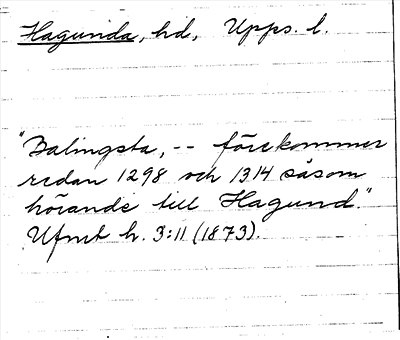 Hagunda, hd, Upps. l.
"Balingsta, -- förekommer
redan 1298 och 1314 såsom
hörande till Hagund."
Ufmt h. 3:11 (1873).